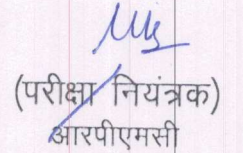 (परीक्षा नियंत्रक)
आरपीएमसी